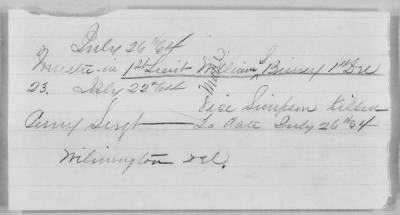 July 26" 64
Muster in 1st Lieut William S Birney 1st Del
23. July 22" 64
Vice Simpson killed
Army Sergt — To date July 26" 64
Wilmington Del.